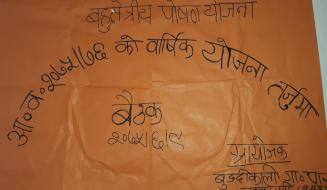 बहुक्षेत्रीय पोषण योजना
आ०व०२०७५।७६ को वार्षिक योजना तर्जुमा
बैठक
२०७५।६।९
आयोजक
बुडीकाली गा०पा